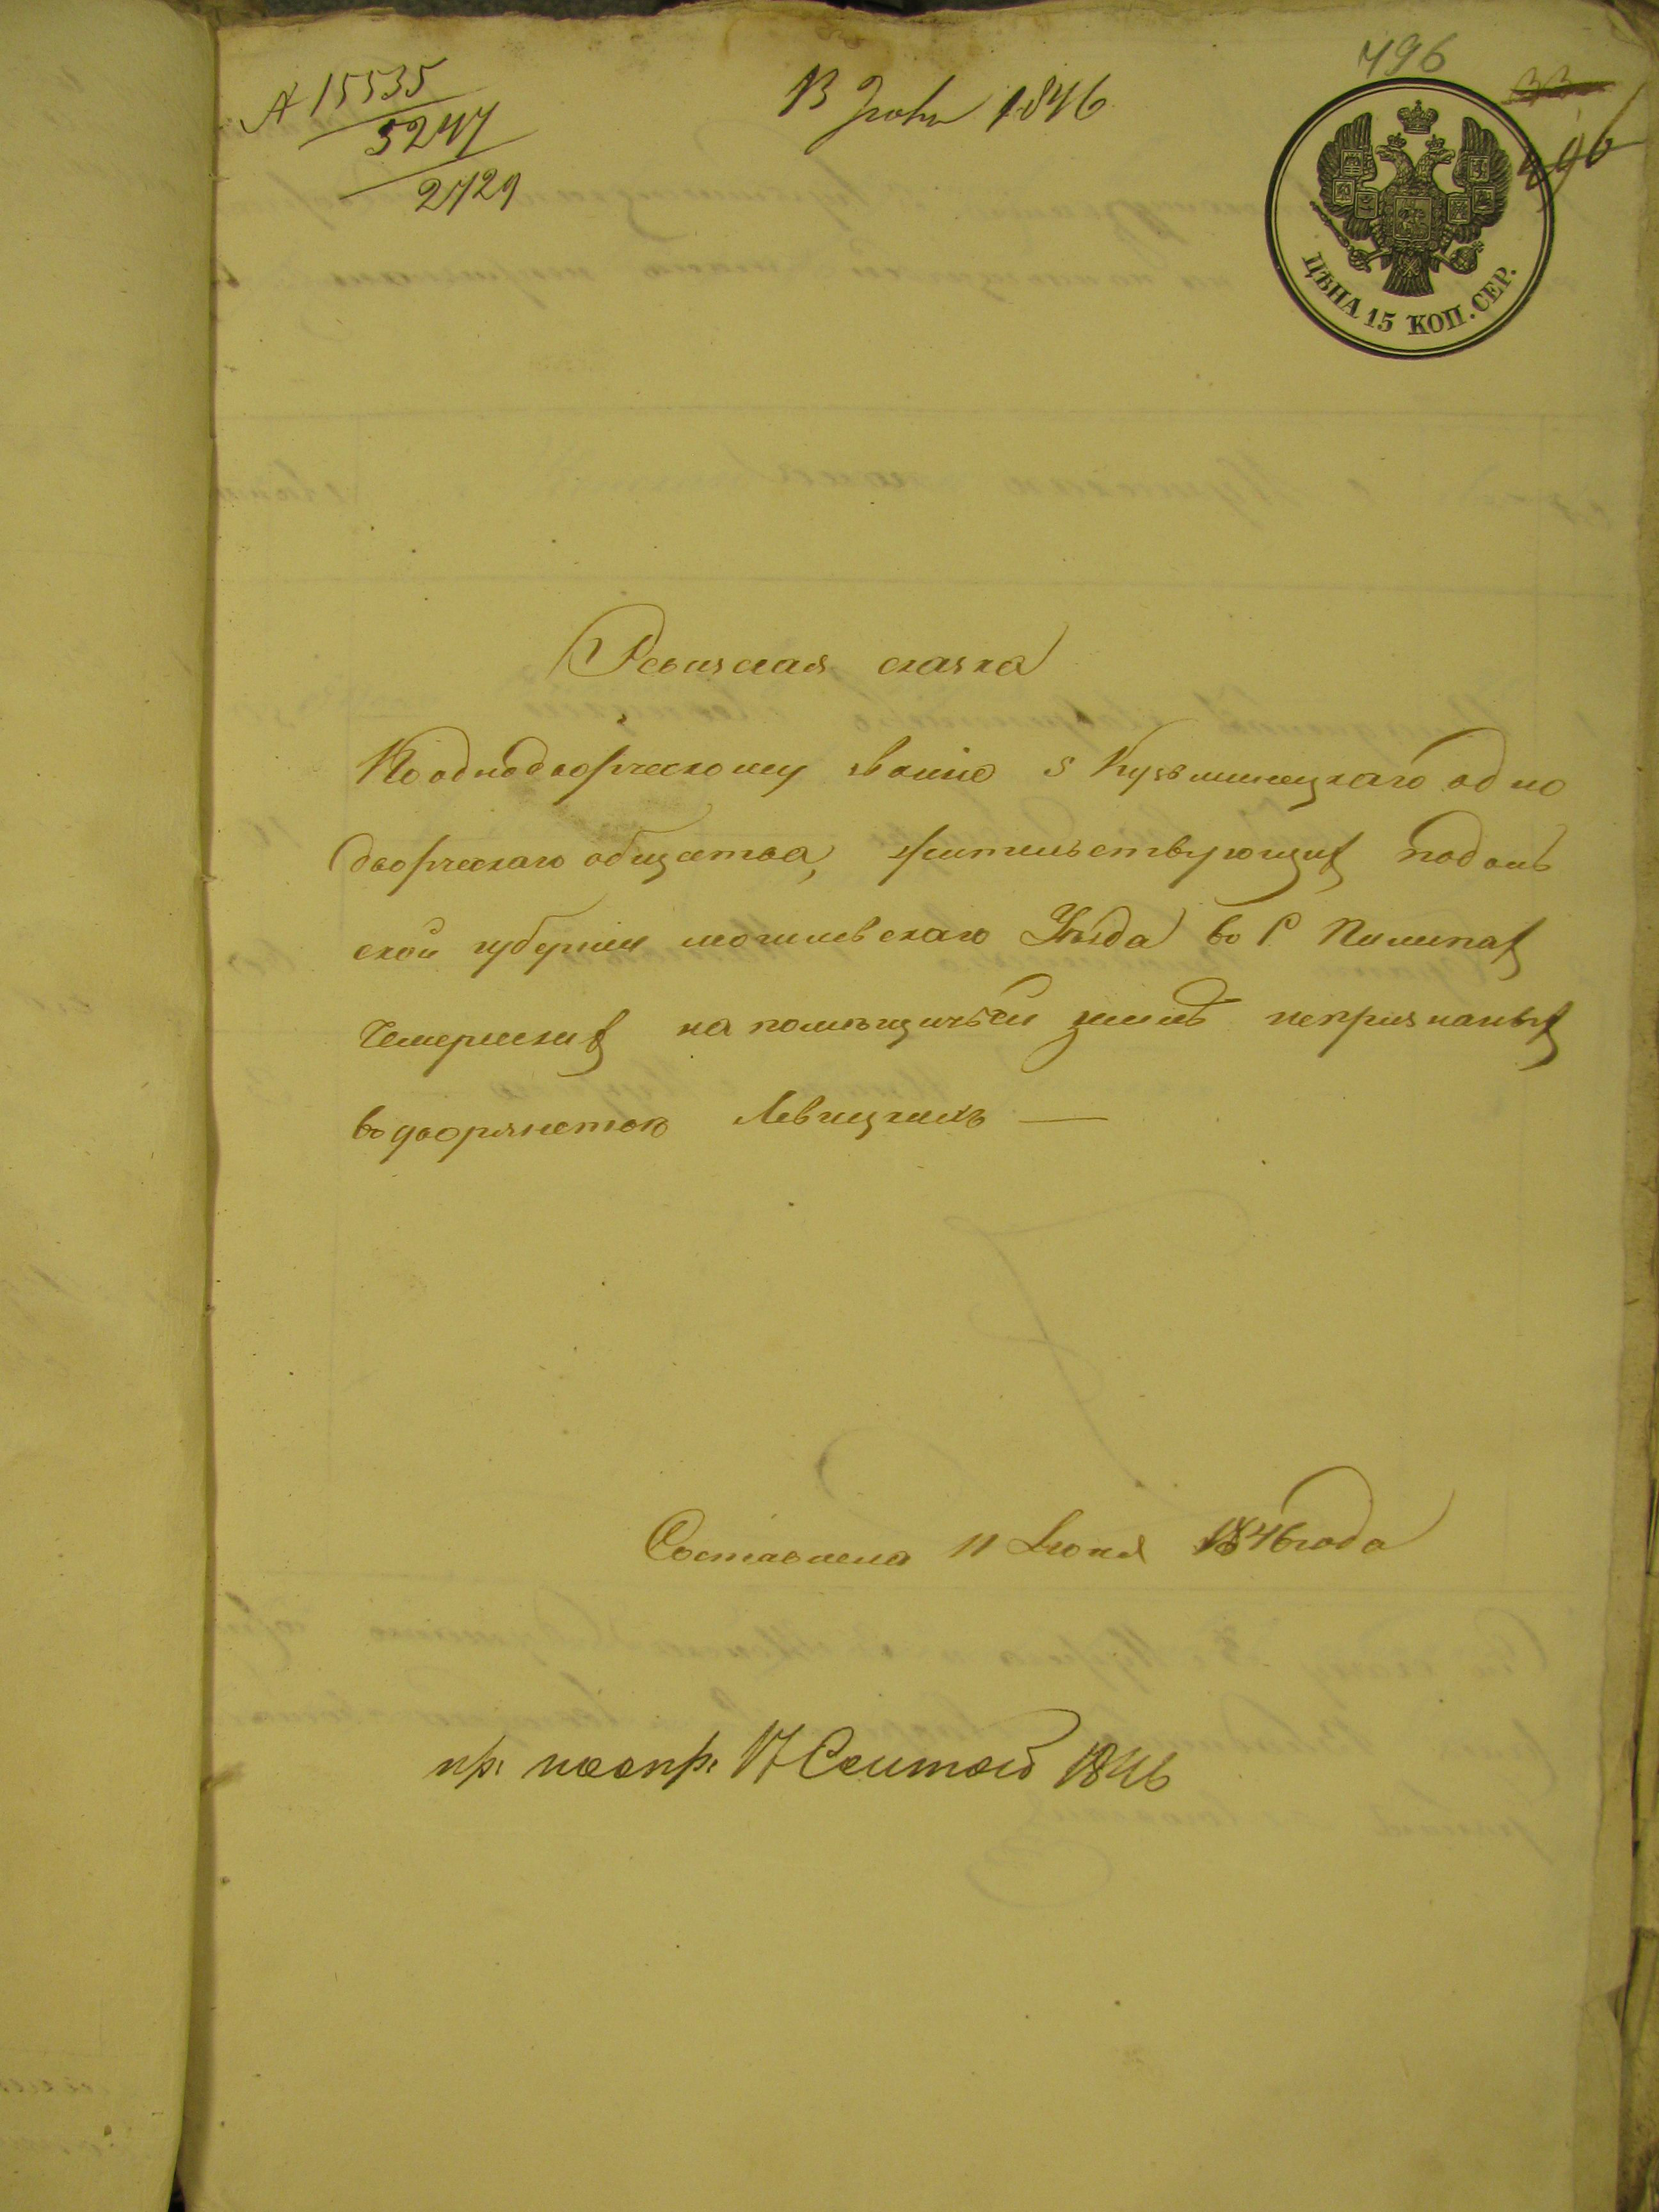 496
15535
5247
2729
13 Июня 1846
33
496
ЦѢНА 15 КОП. СЕР.
Ревизская сказка
По однодворческому званію 5 Кузьминецкаго одно
дворческаго общества, жительствующих подоль
ской губерніи могилевскаго Уѣзда во С Пилипах
Чемериских на помѣщичьей землѣ непризнаных
во дворянство Левицкихъ —
Составлена 11 Іюня 1846 года
17 1846